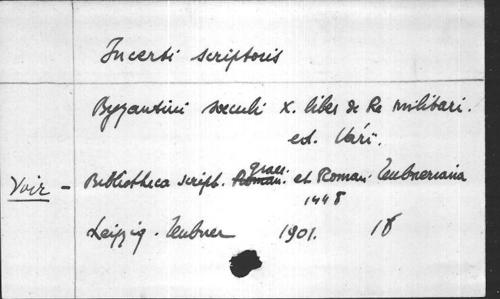 Incerti scriptoris
Byzantini saeculi X. liber de Re militari.
ed. Vári.
Voir - Bibliotheca script. graec. et Roman. Teubneriana
1448
Leipzig. Teubner 1901. 18